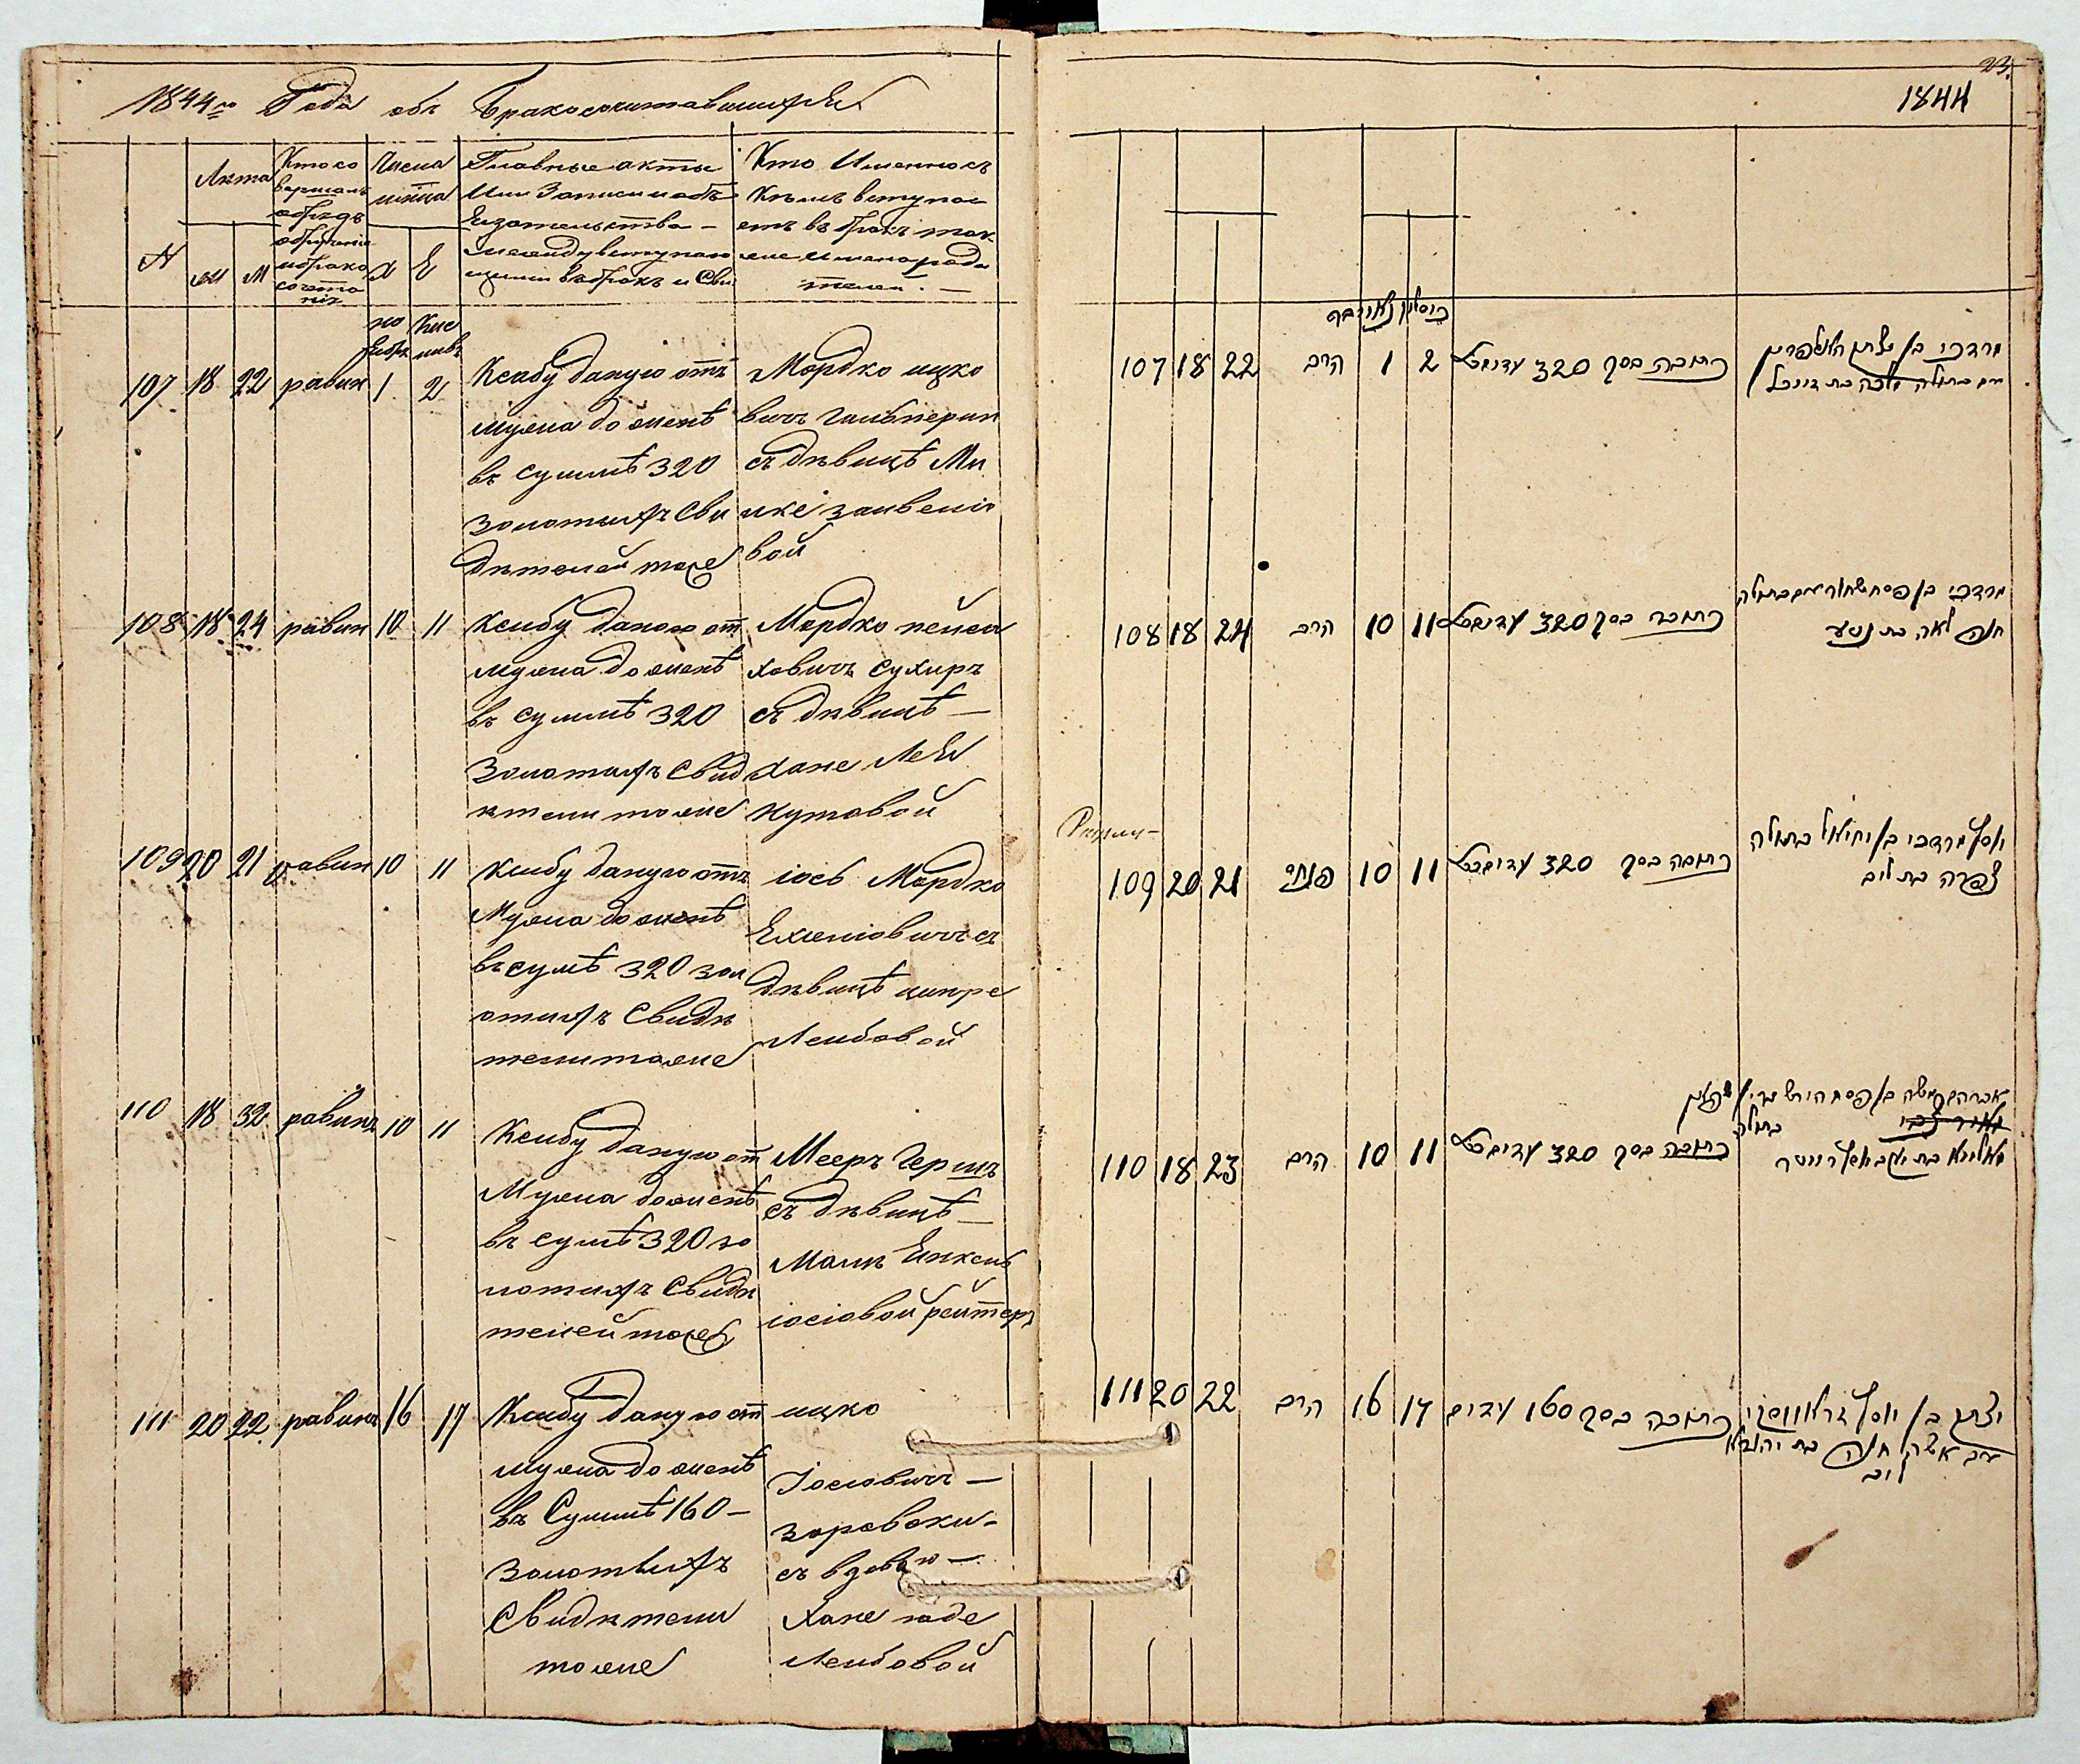 1844го Года объ бракосочитавшихся
N
Лѣта
М
Кто со
вершалъ
обрядъ
обрученія
и брако
сочета
нія
Числа
Х
Е
Главные акты
или Записи и обя
зательства -
между вступаю
щими въ бракъ и Сви
Кто Именно съ
кѣмъ вступа
етъ въ бракъ так
же имена роди
телей. —
но
ябрь
Кис
левъ
107 18 22 равин 1 2
Ксибу даную отъ
мужа до женѣ
въ суммѣ 320
золотыхъ Сви
дѣтелей тоже
Мордко ицко
вичъ гальперин
съ дѣвицѣ Ми
вой
108 18 24 равин 10 11
Ксибу даною от
мужа до женѣ
въ суммѣ 320
золотыхъ Свид
ѣтели тоже
Мордко пейса
ховичъ сухиръ
съ дѣвицѣ —
Хане Лея
нутовой
109 20 21 равин 10 11
ксибу даную отъ
Мужа до женѣ
въ сумѣ 320 зол
отыхъ Свидѣ
тели тоже
іось Мордко
Ехиеліовичъ съ
дѣвицѣ ципре
Лейбовой
110 18 32 равинъ 10 11
Ксибу даную от
Мужа до женѣ
въ сумѣ 320 зо
лотыхъ Свидѣ
телей тоже
Мееръ Гершъ
съ дѣвицѣ —
Малѣ Янкель
іосіовой рейтеръ
111 20 22 равинъ 16 17
Ксибу даную от
мужа до женѣ
въ Суммѣ 160 —
золотыхъ
Свидѣтели
тоже
ицко
Іосіовичъ —
съ вдовою —
Хане
Лейбовой
23.
1844
כיסליו נאויבער
107 18 22 הרב 1 2 כתובה בסך 320 עדים
מרדכי בן יצחק האלפרין
עם בתולה מלכה בת
108 18 24 הרב 10 11 כתובה בסך 320 עדים
מרדכי בן פסח סוחר עם בתולה
חנה לאה בת נטע
109 20 21 פנחס 10 11 כתובה בסך 320 עדים
יוסף מרדכי בן יחיאל בתולה
צפרה בת ליב
110 18 23 הרב 10 11 כתובה בסך 320 עדים
אברהם משה בן פסח הירש
מאיר צבי בתולה
בת יעקב יוסף רייטר
111 20 22 הרב 16 17 כתובה בסך 160 עדים
יצחק בן יוסף
עם אשה חנה בת יהודא
ליב